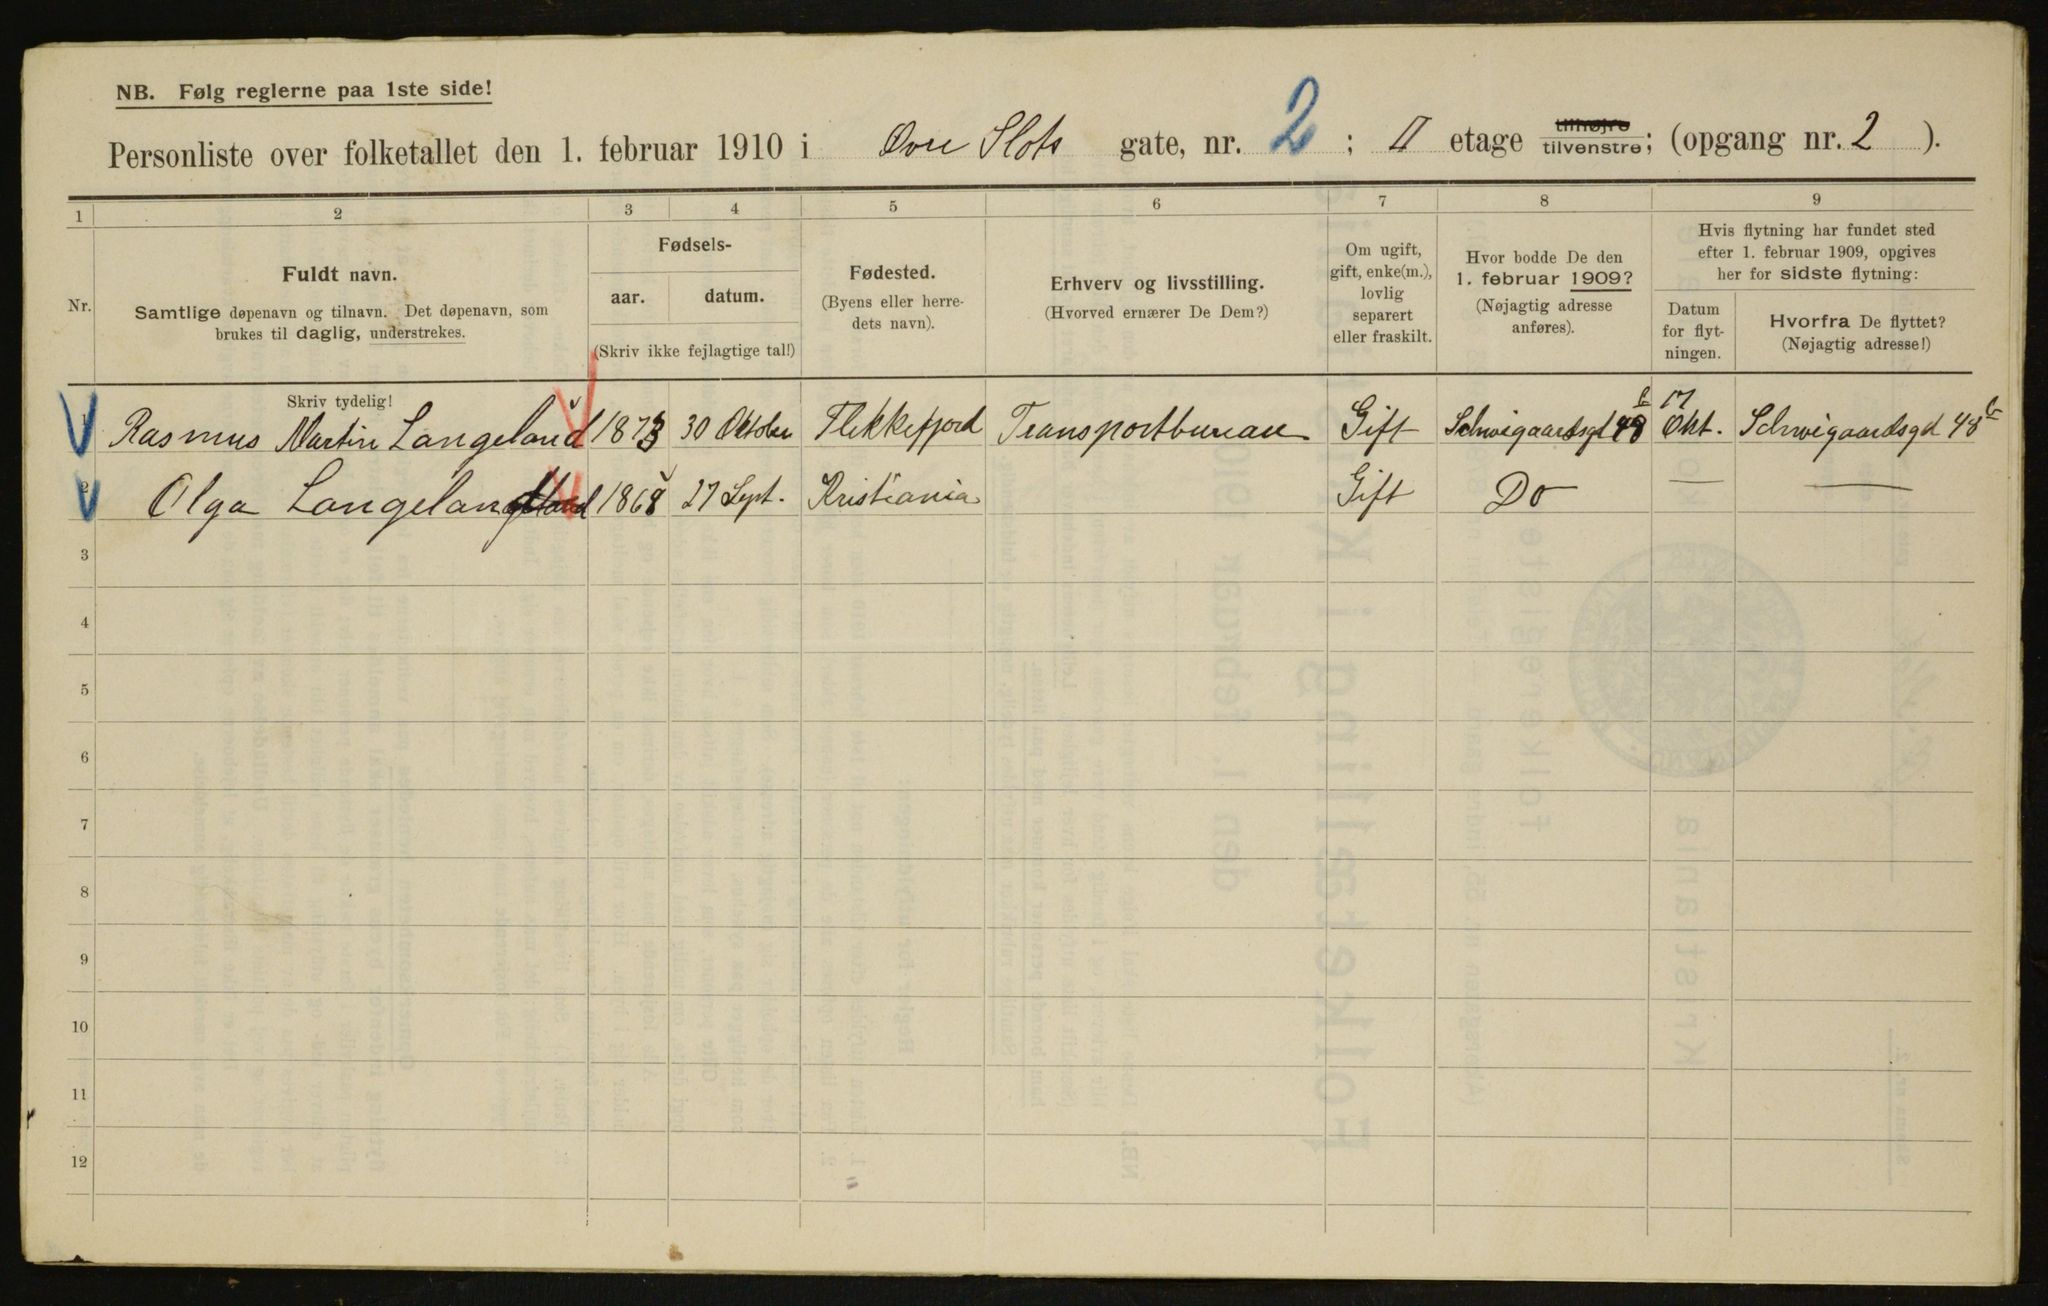 NB. Følg reglerne paa 1ste side!
Personliste over folketallet den 1. februar 1910 i Øvre Slots gate, nr. 2; II etage tilhøjre tilvenstre; (opgang nr. 2 ).
1 2 3 4 5 6 7 8 9
Nr.
Fuldt navn.
Samtlige døpenavn og tilnavn. Det døpenavn, som
brukes til daglig, understrekes.
Skriv tydelig!
Fødsels-
aar. datum.
(Skriv ikke fejlagtige tal!)
Fødested.
(Byens eller herre-
dets navn).
Erhverv og livsstilling.
(Hvorved ernærer De Dem?)
Om ugift,
gift, enke(m.),
lovlig
separert
eller fraskilt.
Hvor bodde De den
1. februar 1909?
(Nøjagtig adresse
anføres).
Hvis flytning har fundet sted
efter 1. februar 1909, opgives
her for sidste flytning:
Datum
for flyt-
ningen.
Hvorfra De flyttet?
(Nøjagtig adresse!)
1 Rasmus Martin Langeland 1873 30 Oktober Flekkefjord Transportbureau Gift Schweigaardsgd 48 b 17 Okt. Schweigaardsgd 48 b
2 Olga Langeland 1868 27 Sept. Kristiania Gift Do — —
3
4
5
6
7
8
9
10
11
12